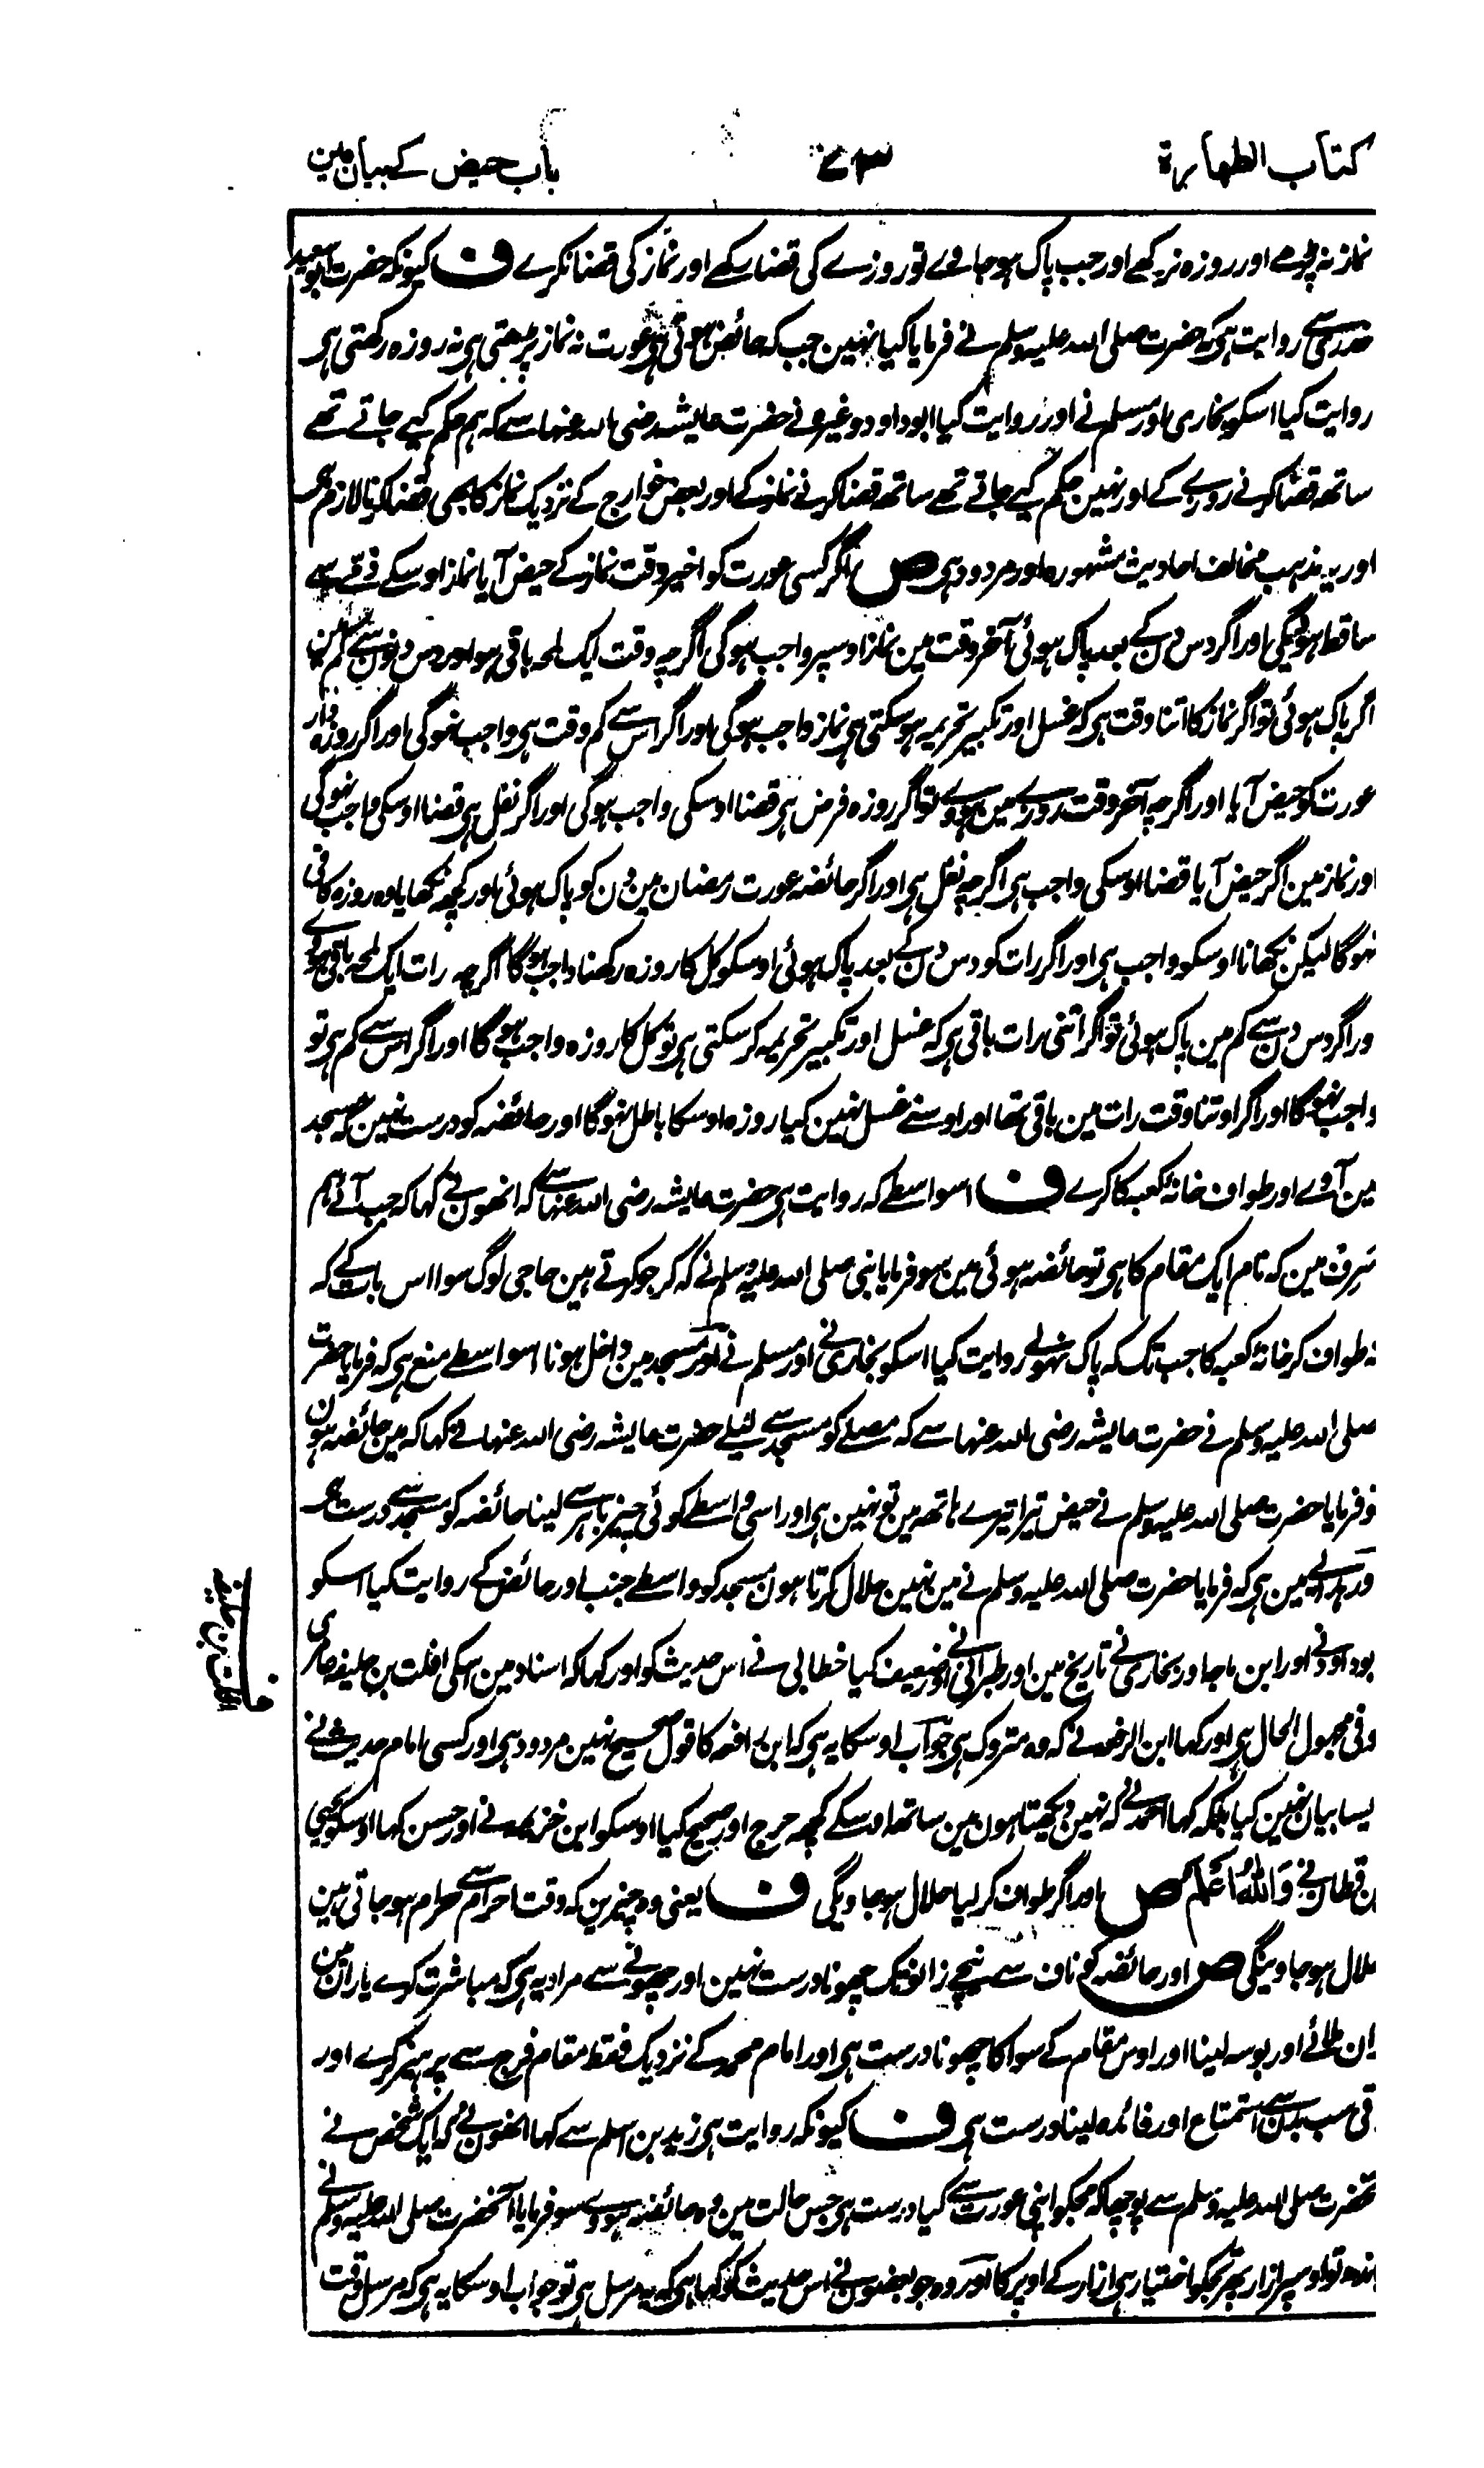 کتاب الطہارۃ ۷۳ باب حیض کے بیان مین
نماز نہ پڑھے اور روزہ نہ رکھے اور جب پاک ہو جاوے تو روزے کی قضا رکھے اور نماز کی قضا نکرے ف کیونکہ حضرت ابو سعید
خدری سے روایت ہی کہ حضرت صلی اللہ علیہ وسلم نے فرمایا کیا نہین جب کہ حائض ہوتی ہی عورت نہ نماز پڑھتی ہی نہ روزہ رکھتی ہی
روایت کیا اسکو بخاری اور مسلم نے اور روایت کیا ابو داود وغیرہ نے حضرت عایشہ رضی اللہ عنہا سے کہ ہم حکم کیے جاتے تھے
ساتھ قضا کرنے روزے کے اور نہین حکم کیے جاتے تھے ساتھ قضا کرنے نماز کے اور بعض خوارج کے نزدیک نماز کا بھی قضا کرنا لازم ہی
اور یہ مذہب مخالف احادیث مشہورہ اور مردود ہی ص اگر کسی عورت کو اخیر وقت نماز کے حیض آیا نماز اوسکے ذمے سے
ساقط ہو گئی اور اگر دس دن کے بعد پاک ہوئی آخر وقت مین نماز اوسپر واجب ہوگی اگرچہ وقت ایک لمحہ باقی ہو اور دس دنون سے کم مین
اگر پاک ہوئی تو اگر نماز کا اتنا وقت ہی کہ غسل اور تکبیر تحریمہ ہو سکتی ہی نماز واجب ہوگی اور اگر اس سے کم وقت ہی واجب نہوگی اور اگر روزہ دار
عورت کو حیض آیا اور اگرچہ آخر وقت روزے مین ہووے تو اگر روزہ فرض ہی قضا اوسکی واجب ہوگی اور اگر نفل ہی قضا اوسکی واجب نہوگی
اور نماز مین اگر حیض آیا قضا اوسکی واجب ہی اگرچہ نفل ہی اور اگر حائضہ عورت رمضان مین دن کو پاک ہوئی اور کچھ نکھایا وہ روزہ کافی
نہوگا لیکن نکھانا اوسکو واجب ہی اور اگر رات کو دس دن کے بعد پاک ہوئی اوسکو کل کا روزہ رکھنا واجب ہوگا اگرچہ رات ایک لمحہ باقی ہوئے
ور اگر دس دن سے کم مین پاک ہوئی تو اگر اتنی رات باقی ہی کہ غسل اور تکبیر تحریمہ کر سکتی ہی تو کل کا روزہ واجب ہوگا اور اگر اس سے کم ہی تو
واجب نہوگا اور اگر اوتنا وقت رات مین باقی تھا اور اوسنے غسل نہین کیا روزہ اوسکا باطل نہوگا اور حائضہ کو درست نہین کہ مسجد
مین آوے اور طواف خانۂ کعبہ کا کرے ف اسواسطے کہ روایت ہی حضرت عایشہ رضی اللہ عنہا سے کہ انھون نے کہا کہ جب آئے ہم
سَرِف مین کہ نام ایک مقام کا ہی تو حائضہ ہوئی مین سو فرمایا نبی صلی اللہ علیہ وسلم نے کہ کر جو کرتے ہین حاجی لوگ سوا اس بات کے کہ
نہ طواف کر خانۂ کعبہ کا جب تک کہ پاک نہولے روایت کیا اسکو بخاری نے اور مسلم نے اور مسجد مین داخل ہونا اسواسطے منع ہی کہ فرمایا حضرت
صلی اللہ علیہ وسلم نے حضرت عایشہ رضی اللہ عنہا سے کہ مصلے کو مسجد سے لیلے حضرت عایشہ رضی اللہ عنہا نے کہا کہ مین حائضہ ہون
فرمایا حضرت صلی اللہ علیہ وسلم نے حیض تیرا تیرے ہاتھ مین تو نہین ہی اور اسی واسطے کوئی چیز باہر سے لینا حائضہ کو مسجد سے درست ہی
ور ہدایے مین ہی کہ فرمایا حضرت صلی اللہ علیہ وسلم نے مین نہین حلال کرتا ہون مسجد کو واسطے جنب اور حائض کے روایت کیا اسکو
بو داود نے اور ابن ماجا ور بخاری نے تاریخ مین اور طبرانی نے اور ضعیف کیا خطابی نے اس حدیث کو اور کہا کہ اسناد مین اسکی افلت بن خلیفہ عامری
وفی مجہول الحال ہی اور کہا ابن الرفعہ نے کہ وہ متروک ہی جواب اوسکا یہ ہی کہ ابن رافعہ کا قول صحیح نہین مردود ہی اور کسی امام حدیث نے
یسا بیان نہین کیا بلکہ کہا احمد نے کہ نہین دیکھتا ہون مین ساتھ اسکے کچھ حرج اور صحیح کیا اوسکو ابن خزیمہ نے اور حسن کہا اوسکو یحیی
ن قطان نے وَاللّٰہُ اَعْلَم ص اور اگر طواف کر لیا حلال ہو جاویگی ف یعنی وہ چیزین کہ وقت احرام سے حرام ہو جاتی ہین
حلال ہو جاوینگی ص اور حائضہ کو ناف سے نیچے زانو تک چھونا درست نہین اور چھونے سے مراد یہ ہی کہ مباشرت کرے یا ران مین
ران ملائے اور بوسہ لینا اور اوس مقام کے سوا کا چھونا درست ہی اور امام محمد کے نزدیک فقط مقام فرج سے پرہیز کرے اور
قی سب بدن سے استمتاع اور فائدہ لینا درست ہی ف کیونکہ روایت ہی زید بن اسلم سے کہا انھون نے کہ ایک شخص نے
نحضرت صلی اللہ علیہ وسلم سے پوچھا کہ مجکو اپنی عورت سے کیا درست ہی جس حالت مین وہ حائضہ ہووے سو فرمایا آنحضرت صلی اللہ علیہ وسلم نے
اندھ تو اوسپر ازار پھر تجکو اختیار ہی ازار کے اوپر کا اور وہ جو بعضون نے اس حدیث کو کہا ہی کہ یہ مرسل ہی تو جواب اوسکا یہ ہی کہ مرسل وقت